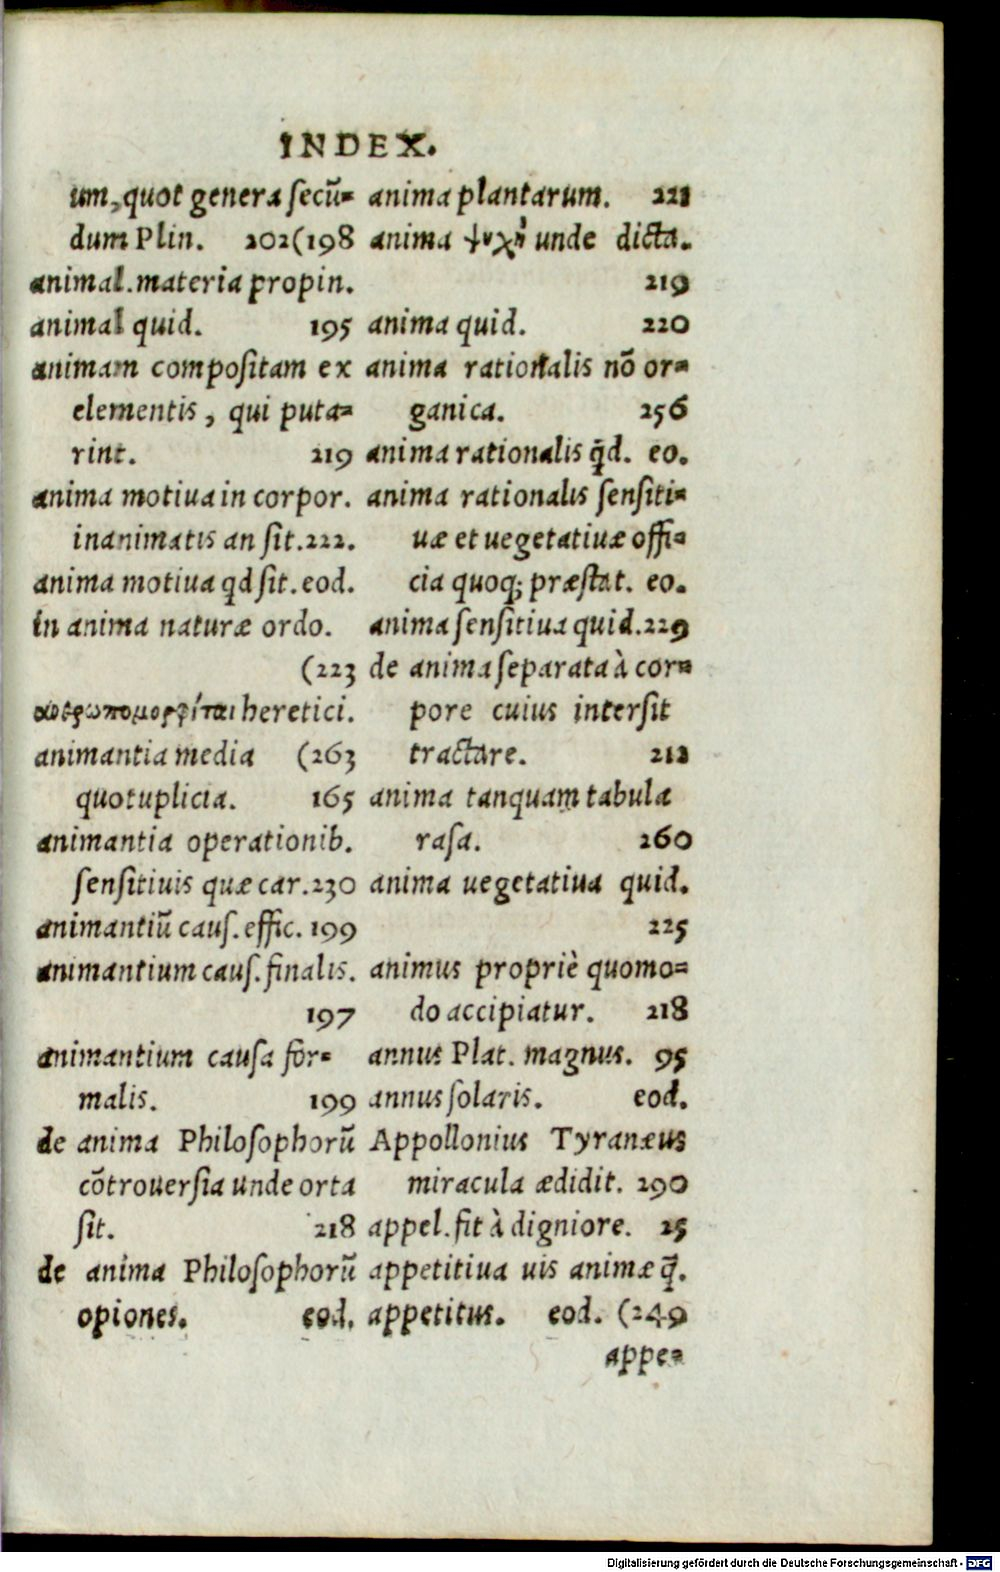 INDEX.
um, quot genera ſecū=
dum Plin. 202(198
animal. materia propin.
animal quid. 195
animam compoſitam ex
elementis, qui puta=
rint. 219
anima motiua in corpor.
inanimatis an ſit. 222.
anima motiua qd ſit. eod.
in anima naturæ ordo.
(223
heretici.
animantia media (263
quotuplicia. 165
animantia operationib.
ſenſitiuis quæ car. 230
animantiū cauſ. effic. 199
animantium cauſ. finalis.
197
animantium cauſa for=
malis. 199
de anima Philoſophorū
cōtrouerſia unde orta
ſit. 218
de anima Philoſophorū
opiones. eod.
anima plantarum. 221
anima ψυχὴ unde dicta.
219
anima quid. 220
anima rationalis nō or=
ganica. 256
anima rationalis q̄d. eo.
anima rationalis ſenſiti=
uæ et uegetatiuæ offi=
cia quoq; præſtat. eo.
anima ſenſitiua quid. 229
de anima ſeparata à cor=
pore cuius interſit
tractare. 212
anima tanquam tabula
raſa. 260
anima uegetatiua quid.
225
animus propriè quomo=
do accipiatur. 218
annus Plat. magnus. 95
annus ſolaris. eod.
Appollonius Tyranæus
miracula ædidit. 290
appel. fit à digniore. 25
appetitiua uis animæ q̄.
appetitus. eod. (249
appe=
Digitalisierung gefördert durch die Deutsche Forschungsgemeinschaft - DFG